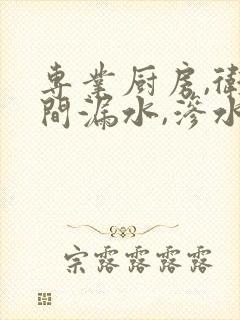 專業厨房,衛
間漏水,滲水
宗露露露露